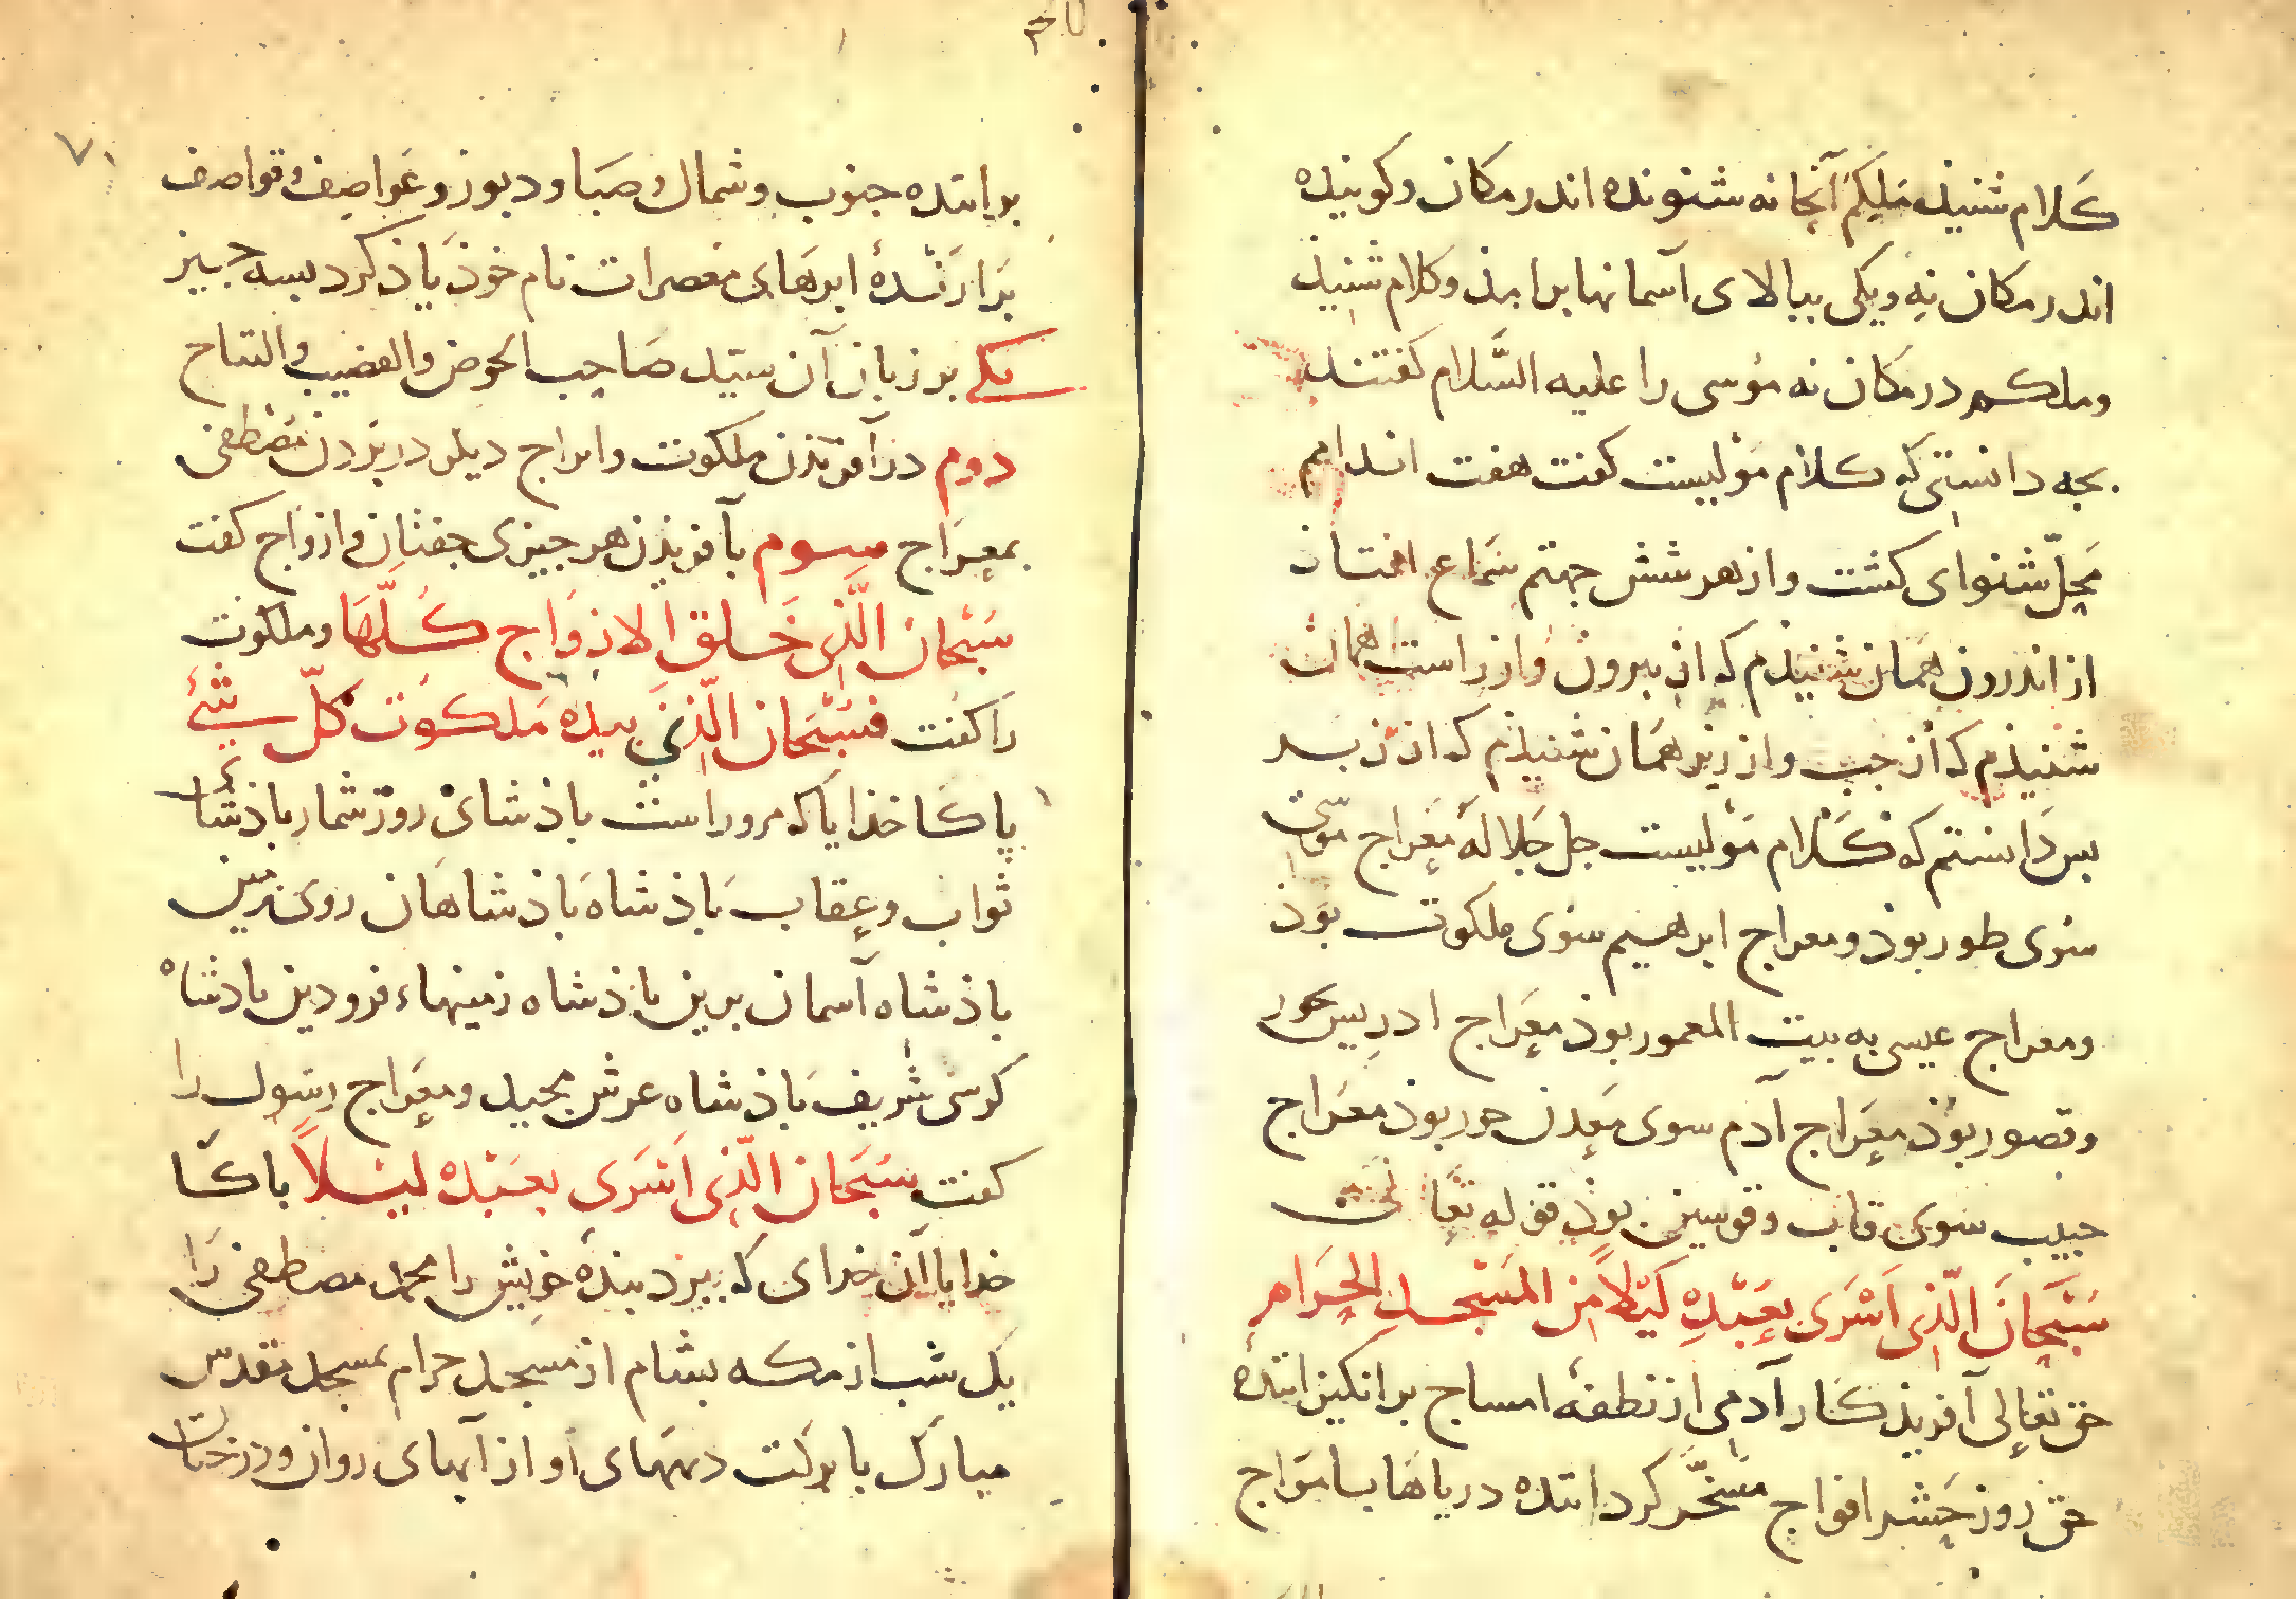 کلام شنیذ ملیکم آنجا نه شنونده اندر مکان و کوینده
اندر مکان نه و یکی ببالای آسمانها برامذ و کلام شنیذ
وملکم در مکان نه موسی را علیه السَّلام کفتند
بجه دانستی که کلام مولیست کفت هفت اندامم
محلّ شنوای کشت و از هر شش جهتم سماع افتاذ
از اندرون همان شنیذم که از بیرون و از راست همان
شنیذم که از جب و از زیر همان شنیذم که از زبر
بس دانستم که کلام مولیست جل جلاله معراج موسی
سوی طور بوذ ومعراج ابرهیم سوی ملکوت بوذ
ومعراج عیسی به بیت المعمور بوذ معراج ادریس حور
وقصور بوذ معراج آدم سوی معدن حور بوذ معراج
حبیب سوی قاب وقوسین بوذ قوله تعالی
سُبْحَانَ الَّذِی اَسْرَی بِعَبْدِهِ لَیْلاً مِنَ المَسْجِدِ الحَرَامِ
حق تعالی آفریذکار آدمی از نطفهٔ امساج برانکیزانندهٔ
حق روز حشر افواج مسخّر کرداننده دریاها با مواج
۷۱
براننده جنوب وشمال وصبا ودبوز وعواصف وقواصف
برارندهٔ ابرهای معصرات نام خوذ یاذ کرد بسه جیز
یکی بر زبان آن سیّد صاحب الحوض والقضیب والتاج
دوم در آفریذن ملکوت وابراج دیکر در بردن مصطفی
بمعراج سوم بآفریذن هر جیزی جفتان وازواج کفت
سبحان الّذی خلق الازواج کلّها وملکوت
را کفت فسبحان الّذی بیده ملکوت کلّ شیء
پاکا خذایا که مرو راست باذشای روز شمار باذشاه
ثواب وعقاب باذشاه باذشاهان روی زمین
باذشاه آسمان برین باذشاه زمینهاء فرودین بادشاه
کرسی شریف باذشاه عرش مجید ومعراج رسول را
کفت سبحان الّذی اَسْرَی بعبده لیلاً باکا
خدایا آن خدای که ببرد بندهٔ خویش را محمد مصطفی را
یک شب از مکه بشام از مسجد حرام بمسجد مقدس
مبارک با برکت دههای او از آبهای روان ودرختان